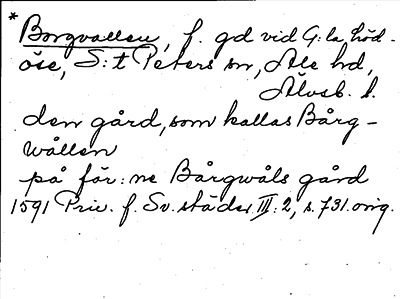 * Borgvallen, f. gd vid G:la Löd-
öse, S:t Peters sn, Ale hd,
Älvsb. l.
den gård, som kallas Bårg-
wållen
på för:ne Bårgwåls gård
1591 Priv. f. Sv. städer III:2, s. 731. orig.